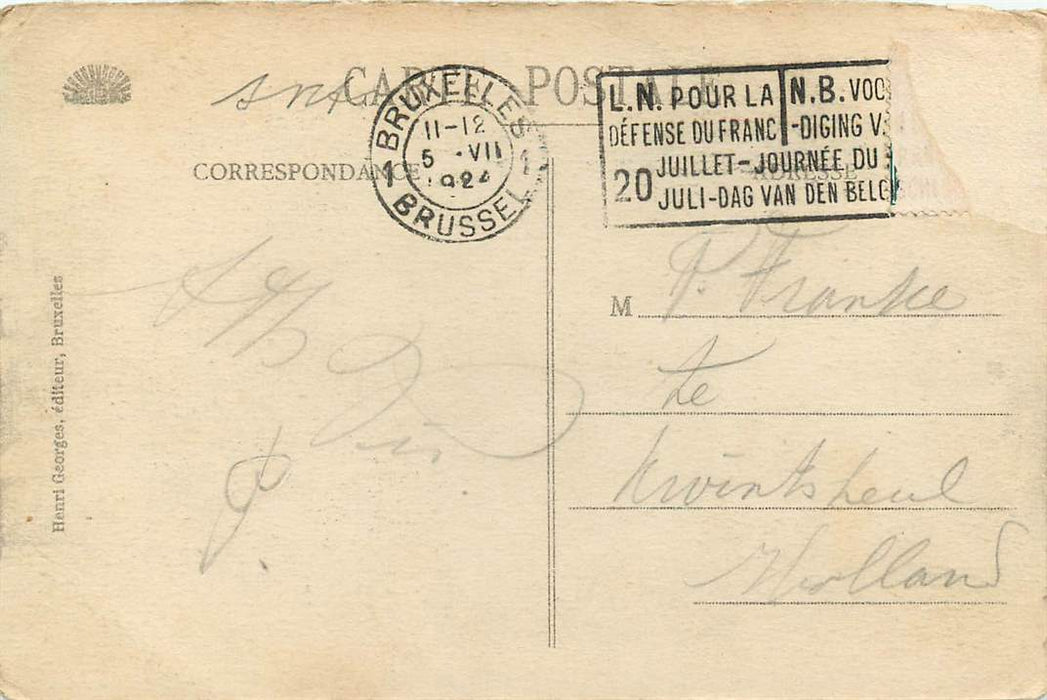 CARTE POSTALE
BRUXELLES
11-12
5 -VII
1924
1 1
BRUSSEL
L.N. POUR LA N.B. VOO
DÉFENSE DU FRANC -DIGING V
JUILLET-JOURNÉE DU
20
JULI-DAG VAN DEN BELG
CORRESPONDANCE
ADRESSE
M P. Franke
te
Kwintsheul
Holland
Henri Georges, éditeur, Bruxelles